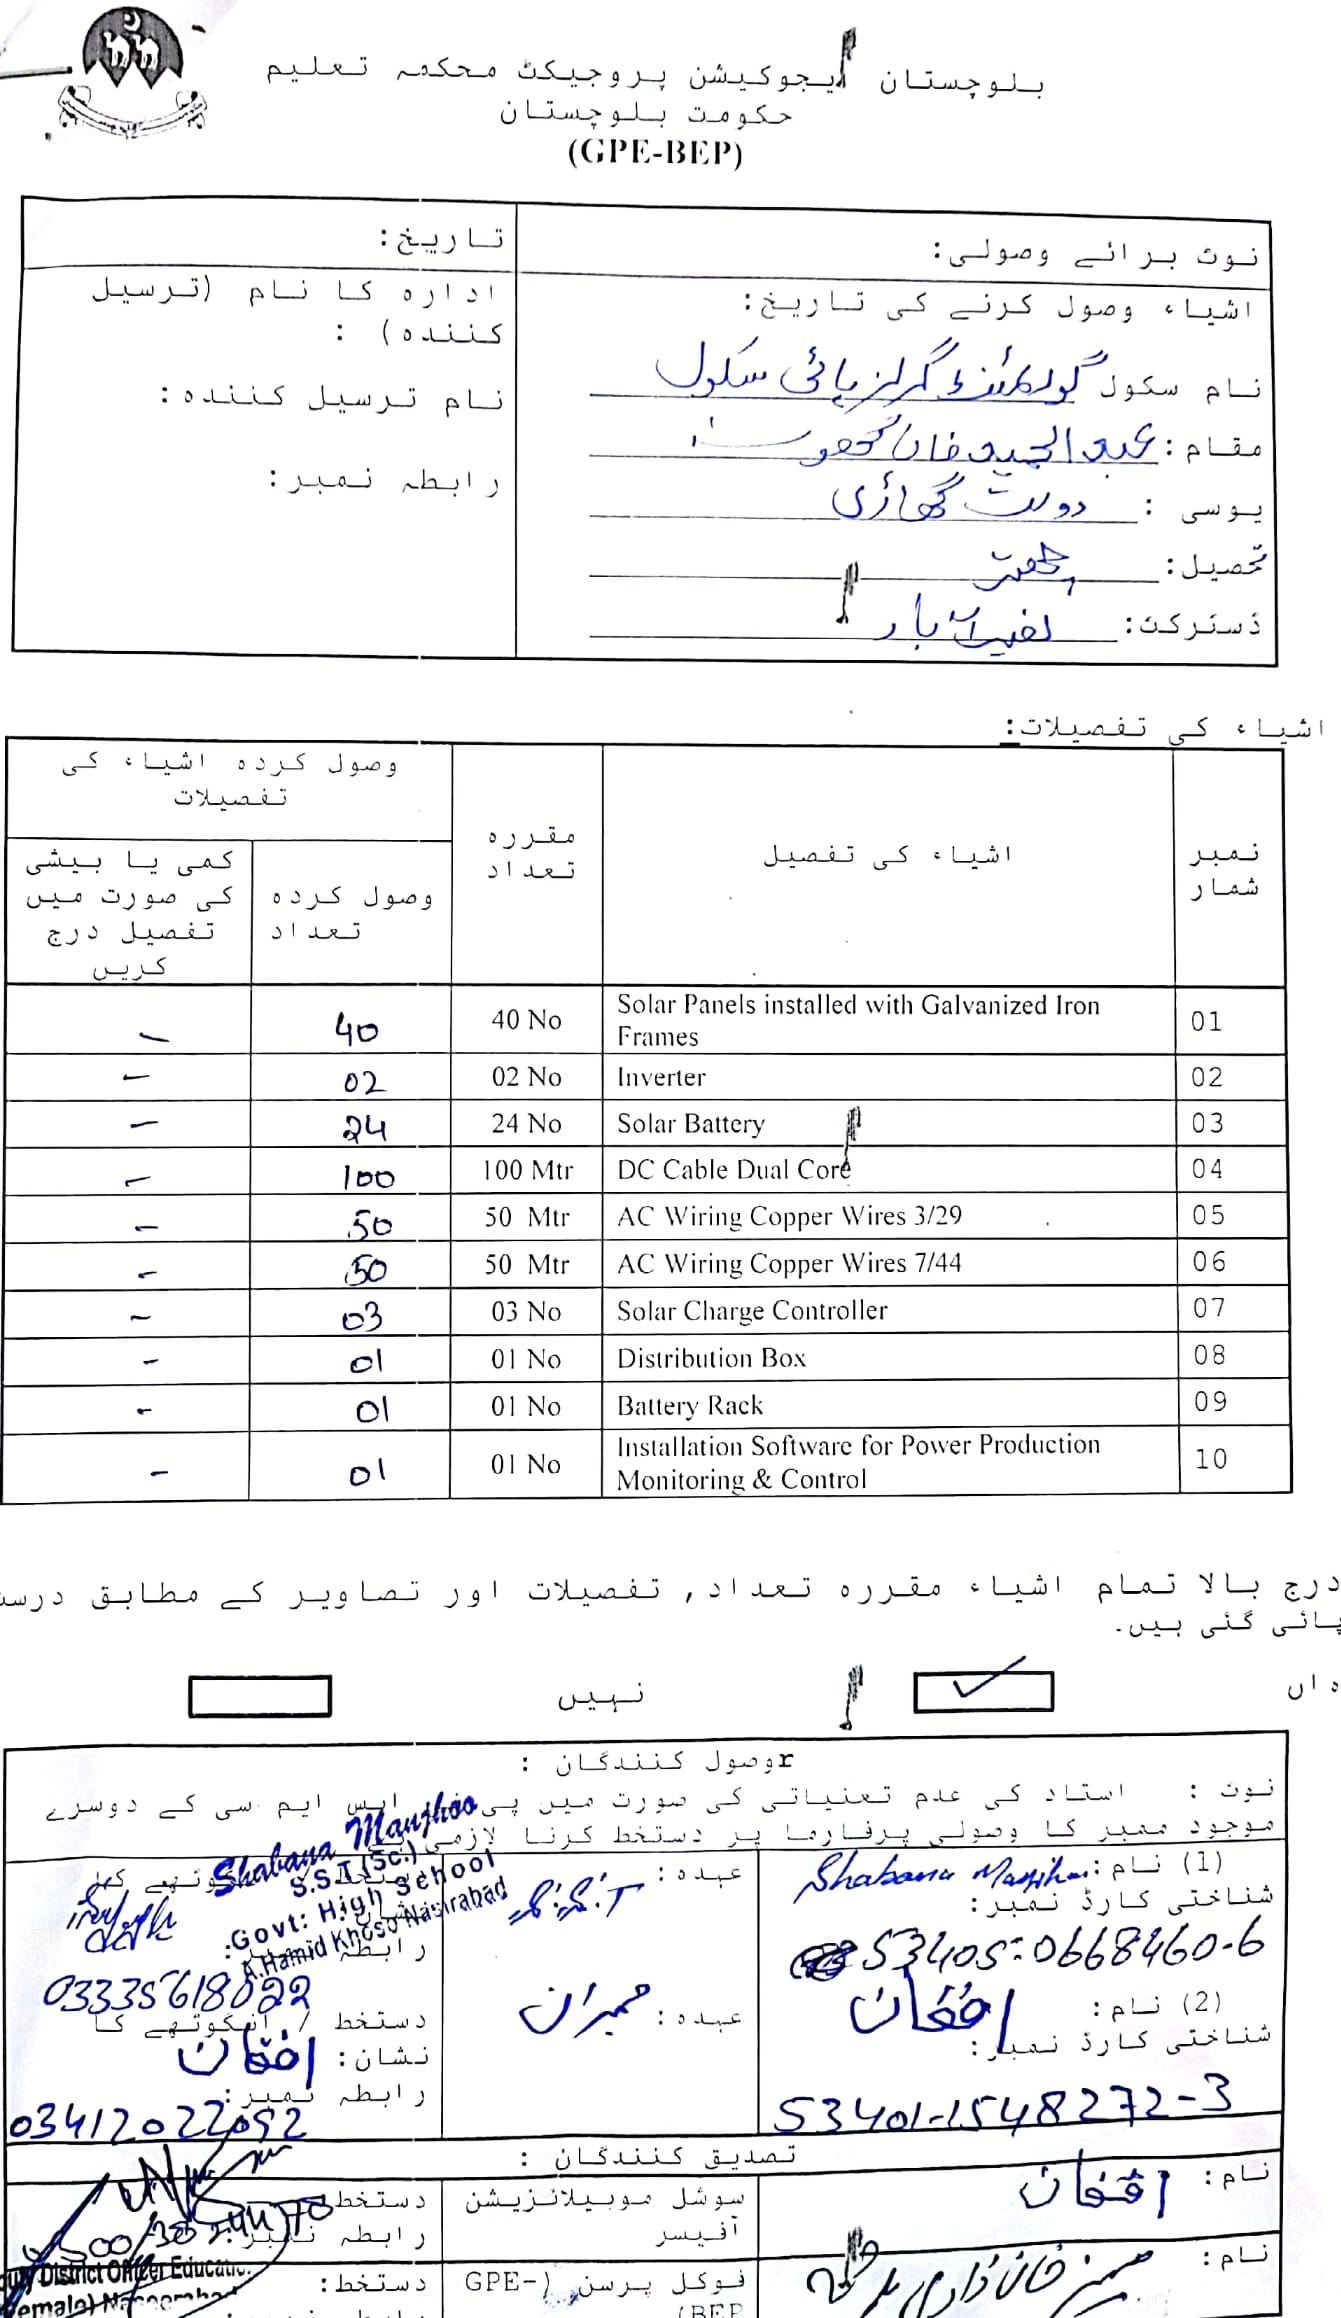 بلوچستان ایجوکیشن پروجیکٹ محکمہ تعلیم
حکومت بلوچستان
(GPE-BEP)
نوٹ برائے وصولی:
تاریخ:
اشیاء وصول کرنے کی تاریخ:
نام سکول گورنمنٹ گرلز ہائی سکول
مقام: عبدالحمید خان کھوسہ
یوسی :
تحصیل: چھتر
ڈسٹرکٹ: نصیرآباد
ادارہ کا نام (ترسیل
کنندہ) :
نام ترسیل کنندہ:
رابطہ نمبر:
اشیاء کی تفصیلات:
نمبر شمار
اشیاء کی تفصیل
مقررہ تعداد
وصول کردہ اشیاء کی تفصیلات
وصول کردہ تعداد
کمی یا بیشی کی صورت میں تفصیل درج کریں
01 Solar Panels installed with Galvanized Iron Frames 40 No 40 -
02 Inverter 02 No 02 -
03 Solar Battery 24 No 24 -
04 DC Cable Dual Core 100 Mtr 100 -
05 AC Wiring Copper Wires 3/29 50 Mtr 50 -
06 AC Wiring Copper Wires 7/44 50 Mtr 50 -
07 Solar Charge Controller 03 No 03 -
08 Distribution Box 01 No 01 -
09 Battery Rack 01 No 01 -
10 Installation Software for Power Production Monitoring & Control 01 No 01 -
درج بالا تمام اشیاء مقررہ تعداد, تفصیلات اور تصاویر کے مطابق درست
پائی گئی ہیں.
ہاں ✓ نہیں
rوصول کنندگان :
نوٹ : استاد کی عدم تعنیاتی کی صورت میں پی ایس ایم سی کے دوسرے
موجود ممبر کا وصولی پرفارما پر دستخط کرنا لازمی
(1) نام: Shabana Manjhoo
شناختی کارڈ نمبر:
53405-0668460-6
عہدہ: S.S.T
Shabana Manjhoo
S.S.T (Sc.)
Govt: High School
A.Hamid Khoso Nasirabad
03335618022
(2) نام: افغان
شناختی کارڈ نمبر:
53401-1548272-3
عہدہ: ممبران
دستخط / انگوٹھے کا
نشان: افغان
رابطہ نمبر:
03412022092
تصدیق کنندگان :
نام: افغان
سوشل موبیلائزیشن
آفیسر
دستخط
رابطہ نمبر:
نام:
فوکل پرسن (GPE-
BEP)
دستخط:
District Officer Educatio